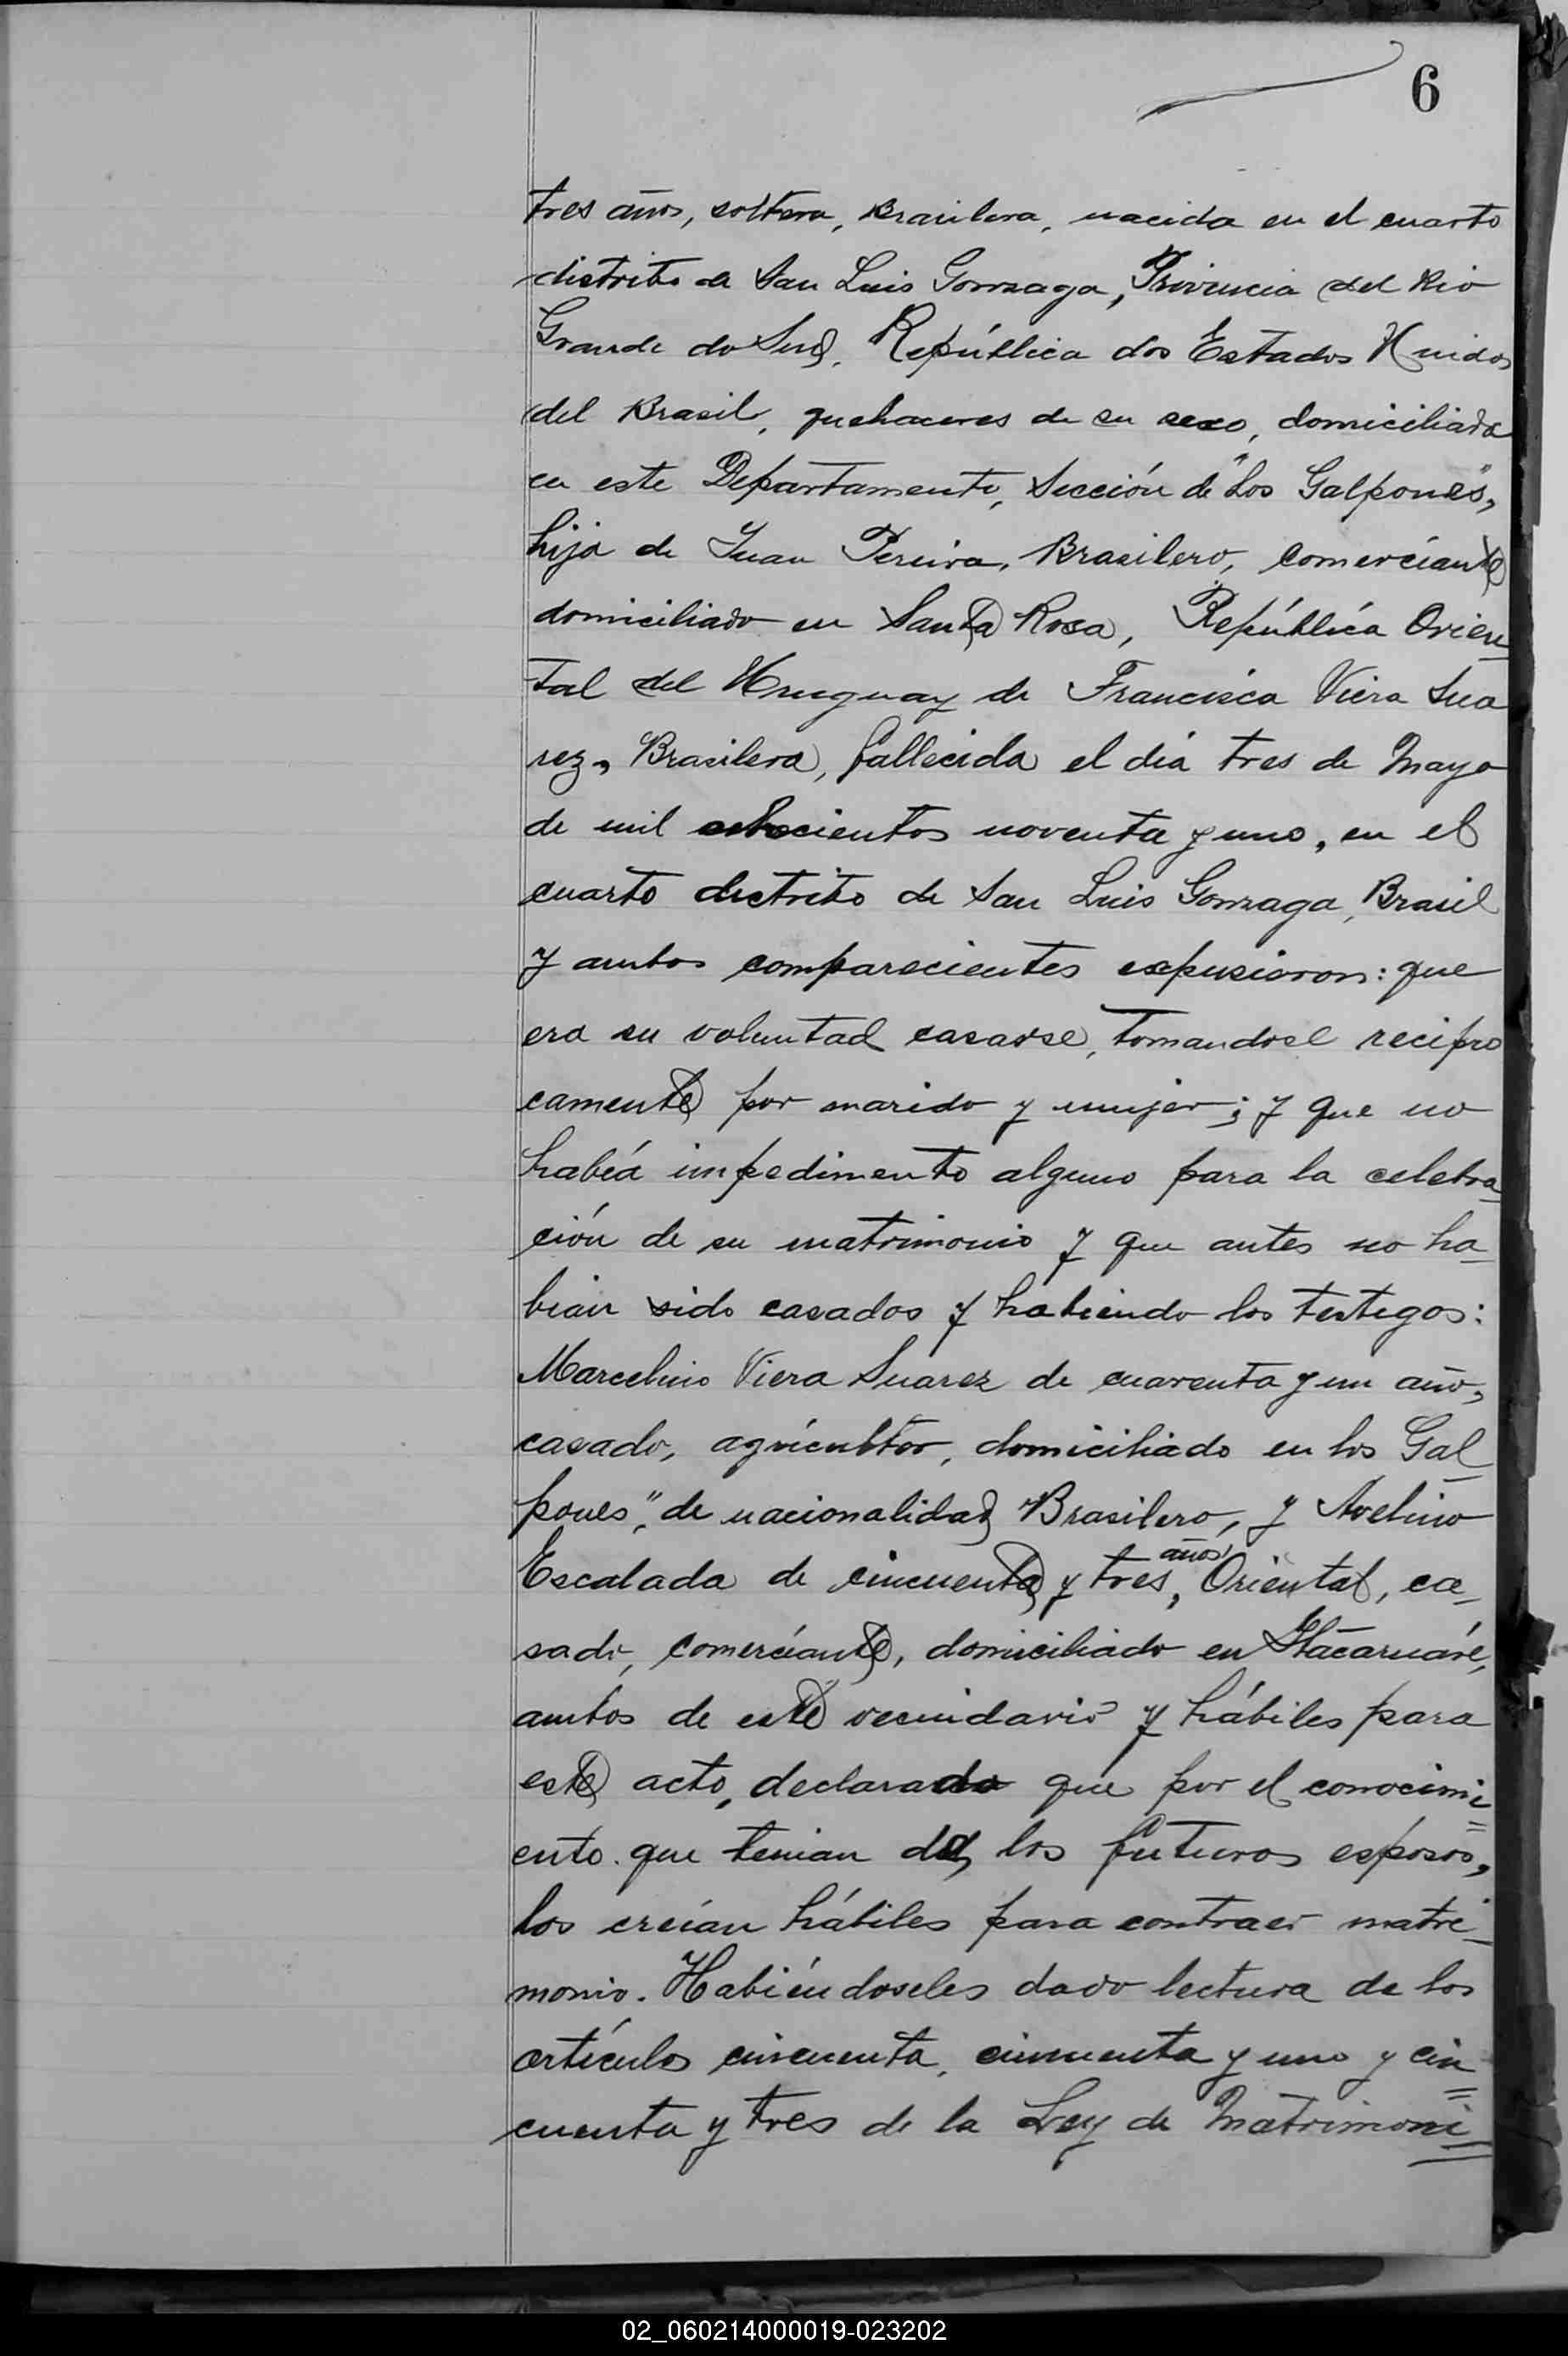 6
tres años, soltera, Brasilera, nacida en el cuarto
distrito de San Luis Gonzaga, Provincia del Rio
Grande do Sud, República dos Estados Unidos
del Brasil, quehaceres de su sexo, domiciliada
en este Departamento, Sección de "Los Galpones",
hija de Juan Pereira, Brasilero, comerciante
domiciliado en Santa Rosa, República Orien_
tal del Uruguay de Francisca Viera Sua
rez, Brasilera, fallecida el día tres de Mayo
de mil ochocientos noventa y uno, en el
cuarto distrito de San Luis Gonzaga, Brasil
y ambos comparecientes expusieron: que
era su voluntad casarse, tomandose recipro
camente por marido y mujer; y que no
había impedimento alguno para la celebra_
ción de su matrimonio y que antes no ha_
bian sido casados y habiendo los testigos:
Marcelino Viera Suarez de cuarenta y un año,
casado, agricultor, domiciliado en los Gal_
pones", de nacionalidad Brasilero, y Avelino
Escalada de cincuenta y tres años, Oriental, ca_
sado, comerciante, domiciliado en Itacaruaré,
ambos de este vecindario y hábiles para
este acto, declarado que por el conocimi=
ento que tenian de los futuros esposos,
los creían hábiles para contraer matri_
monio. Habiéndoseles dado lectura de los
artículos cincuenta, cincuenta y uno y cin=
cuenta y tres de la Ley de Matrimoni=
02_060214000019-023202